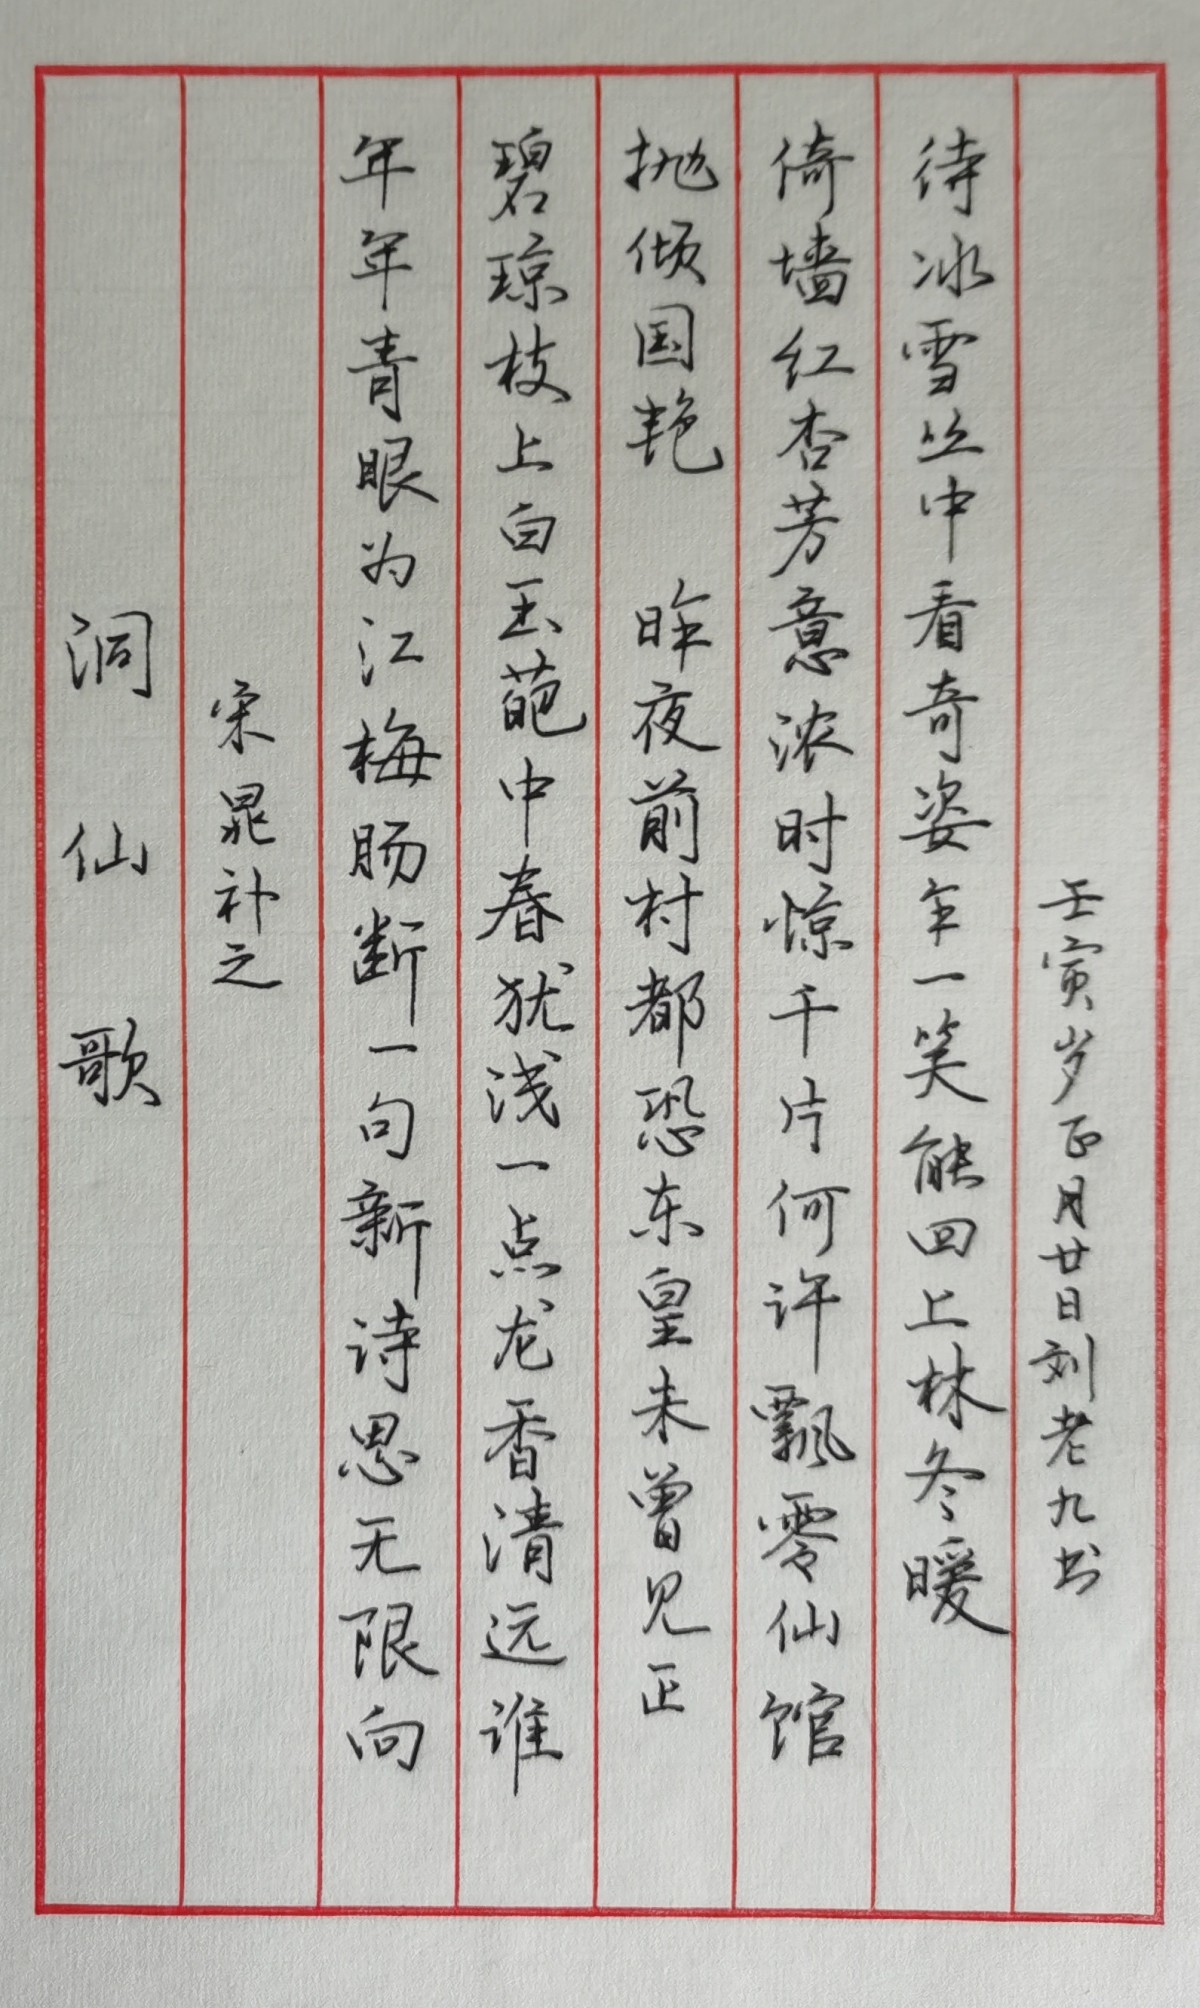 洞仙歌
宋晁补之
年年青眼为江梅肠断一句新诗思无限向
碧琼枝上白玉葩中春犹浅一点龙香清远谁
抛倾国艳 昨夜前村都恐东皇未曾见正
倚墙红杏芳意浓时惊千片何许飘零仙馆
待冰雪丛中看奇姿乍一笑能回上林冬暖
壬寅岁正月廿日刘老九书